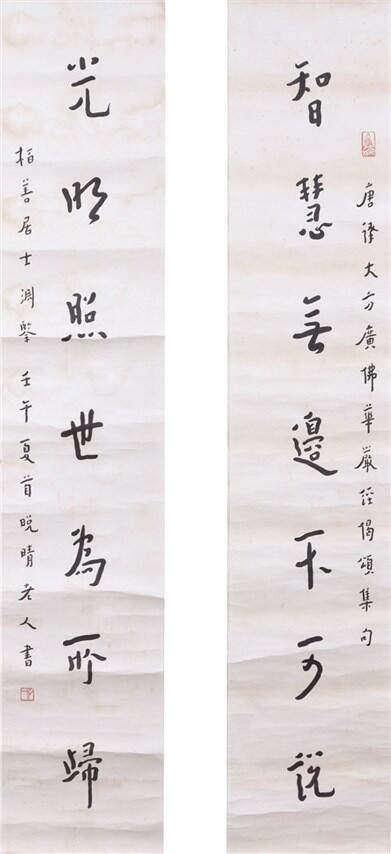 智慧無邊不可說
唐譯大方廣佛華嚴經偈頌集句
光明照世為所歸
柏善居士淵鑒 壬午夏首晚晴老人書